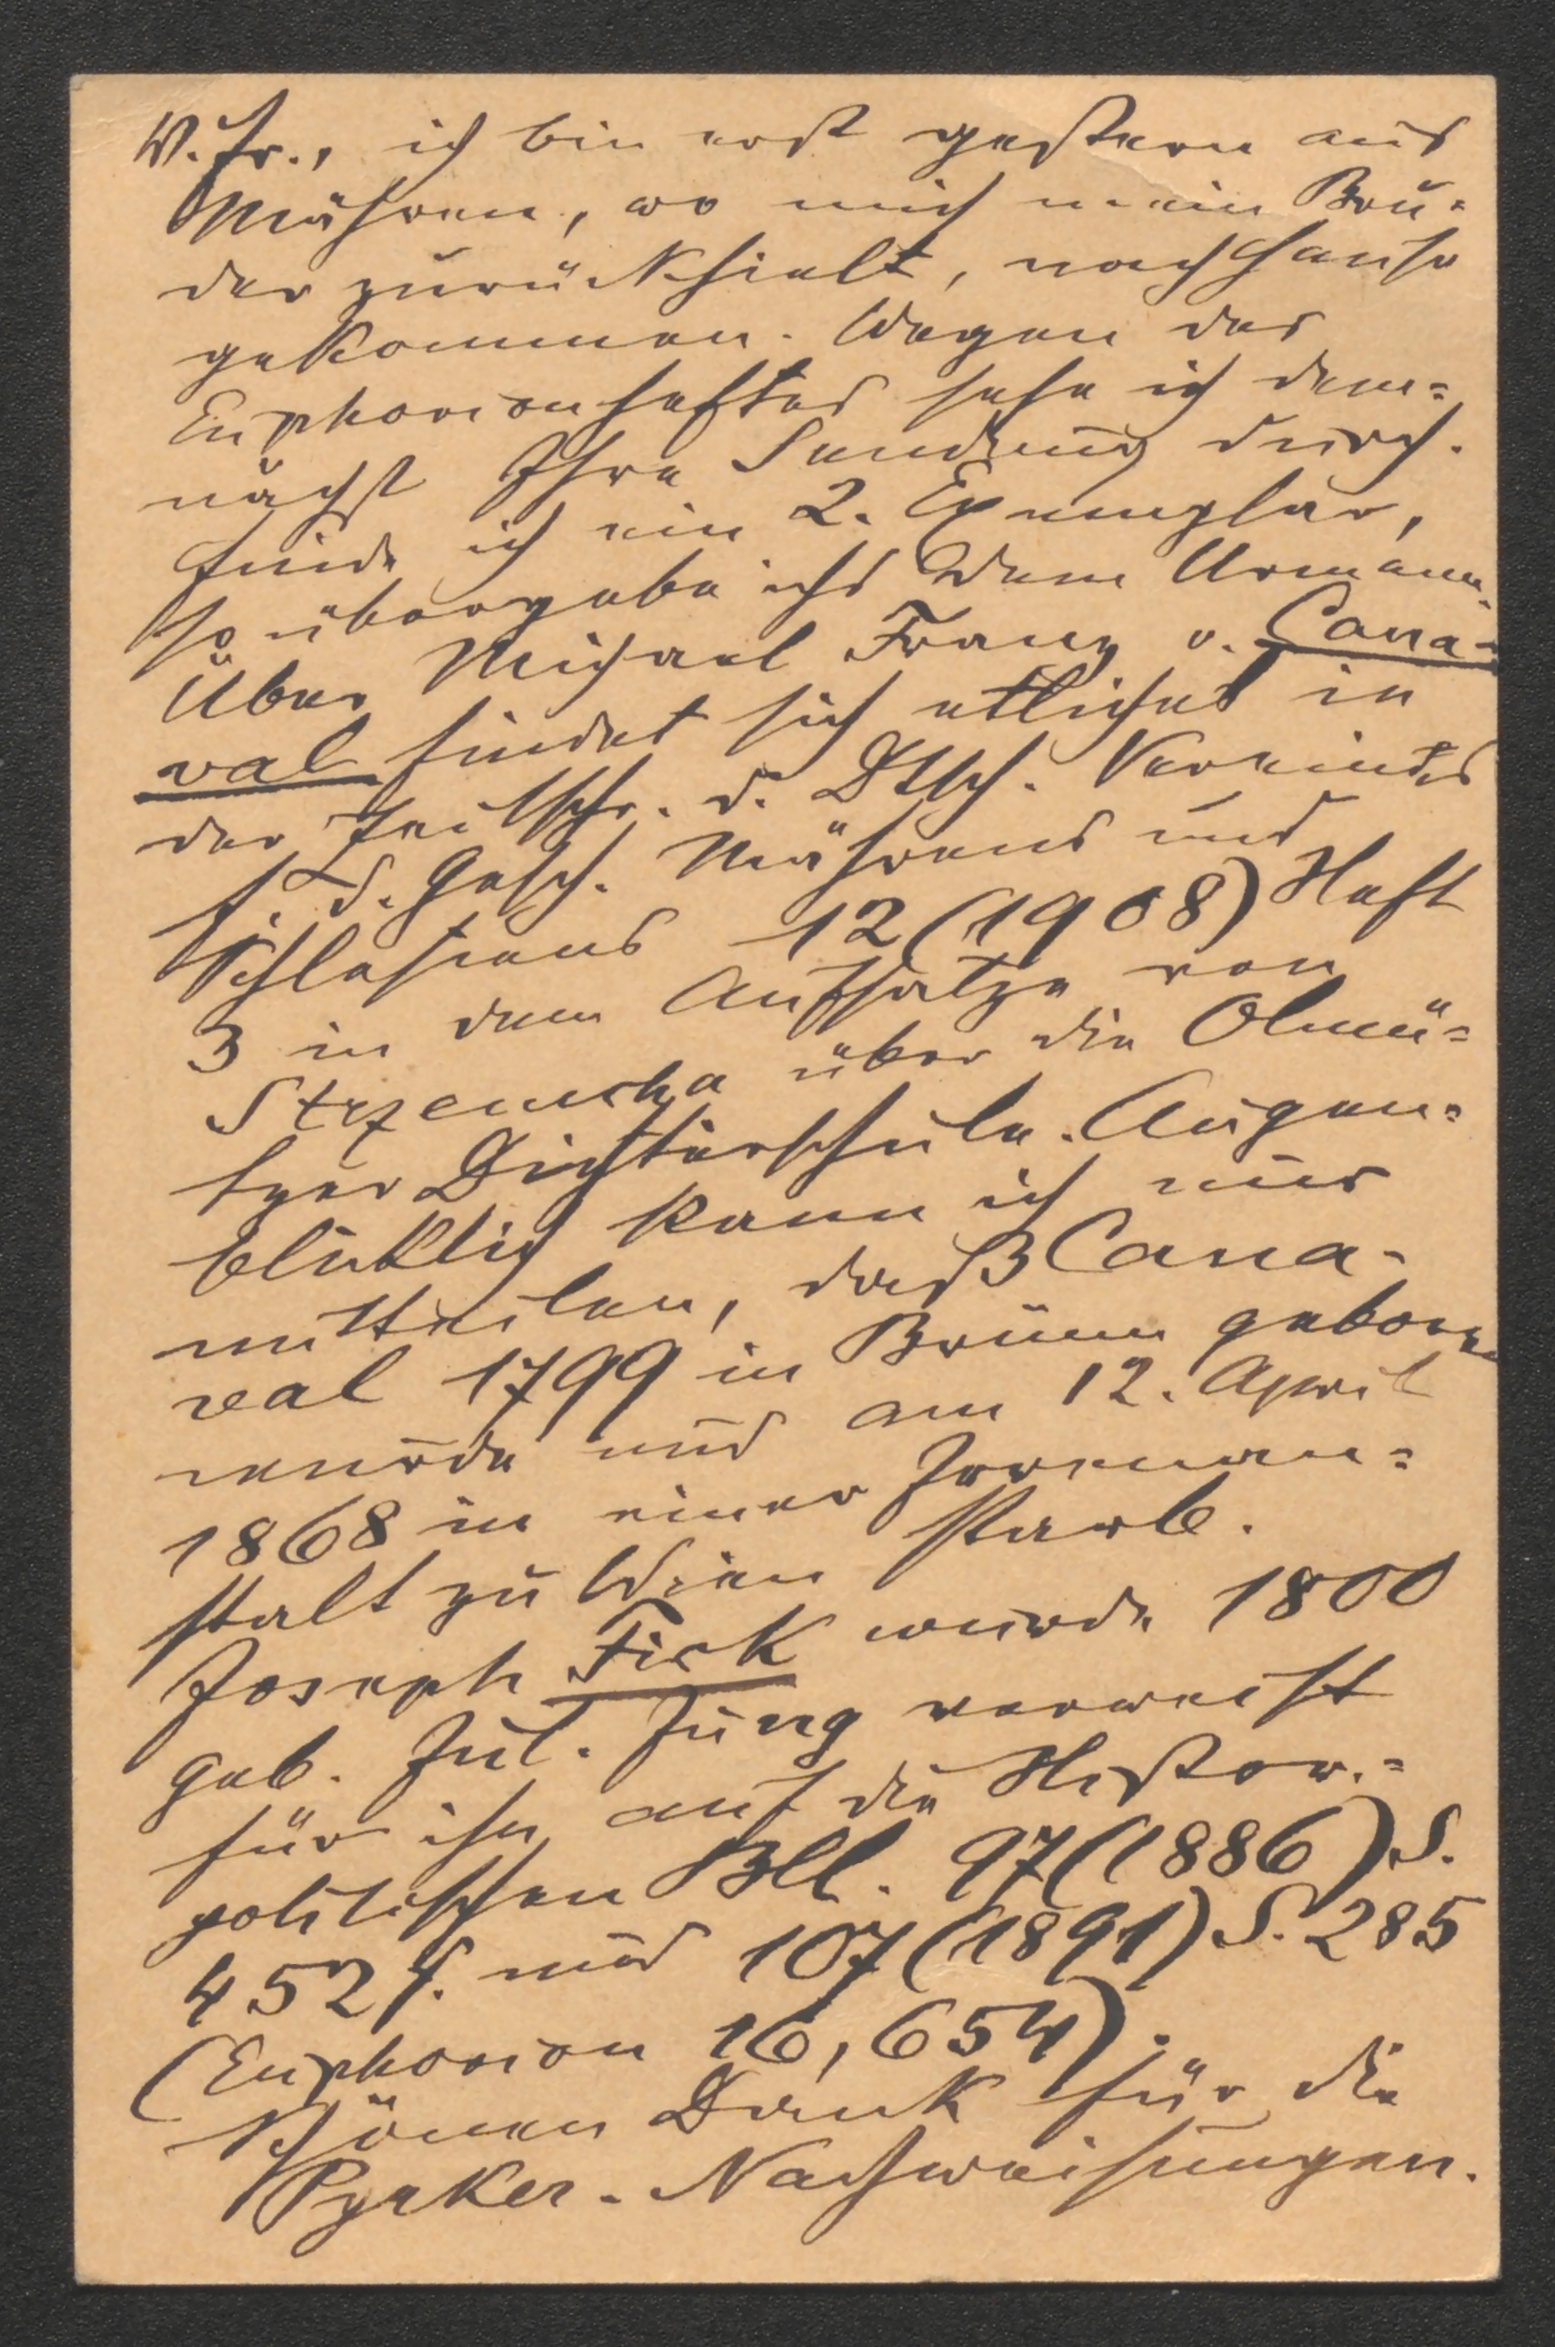 V. Fr., ich bin erst gestern aus
Mähren, wo mich mein Bru=
der zurückhielt, nach Hause
gekommen. Wegen des
Euphorionheftes sehe ich dem=
nächst Ihre Sendung durch.
Finde ich ein 2. Exemplar,
so übergebe ichs dem Urmann.
Über Michael Franz v. Cana-
val findet sich etliches in
der Zeitschr. d. Dtsch. Vereines
f. d. Gesch. Mährens und
Schlesiens 12 (1908) Heft
3 in dem Aufsatze von
Strzemcha über die Olmü=
tzer Dichterschule. Augen=
blicklich kann ich nur
mitteilen, daß Cana-
val 1799 in Brünn geboren
wurde und am 12. April
1868 in einer Irrenan=
stalt zu Wien starb.
Joseph Fick wurde 1800
geb. Jul. Jung verweist
für ihn auf die Histor.=
politischen Bll. 97 (1886) S.
452 f. und 107 (1891) S. 285
(Euphorion 16, 654).
Schönen Dank für die
Pyrker-Nachweisungen.